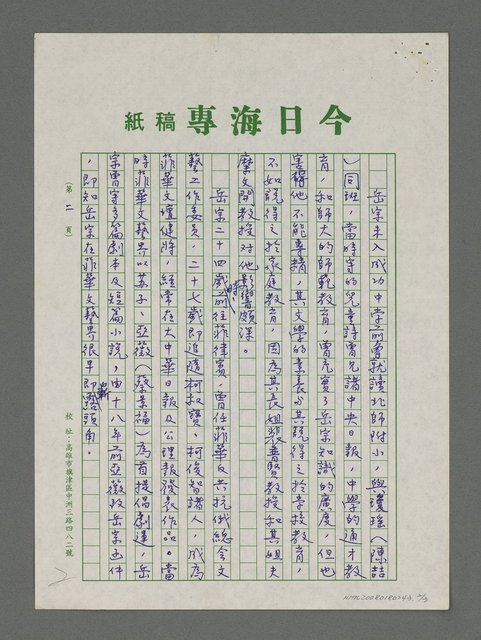 今日海專稿紙
岳宗未入成功中學前曾就讀北師附小，與瓊瑤（陳喆
）同班，當時寫的兒童詩曾見諸中央日報，中學的通才教
育，和師大的師範教育，曾充實了岳宗知識的廣度，但也
害得他不能專精，其文學的素養與其說得之於學校教育，
不如說得之於家庭教育，因為其長姐裴普賢教授和其姐夫
糜文開教授對他影響頗深。
岳宗二十四歲時前往菲律賓，曾任菲華反共抗俄總會文
藝工作委員，二十七歲即追隨柯叔寶、柯俊智諸人，成為
菲華文壇健將，經常在大中華日報及公理報發表作品。當
時菲華文藝界以蘇子、亞薇（蔡景福）為首提倡劇運，岳
宗曾寫多篇劇本及短篇小說，由十八年前亞薇致岳宗函件
，即知岳宗在菲華文藝界很早即嶄露頭角。
（第二頁）
校址：高雄市旗津區中洲三路四八二號
NMTL20080180243